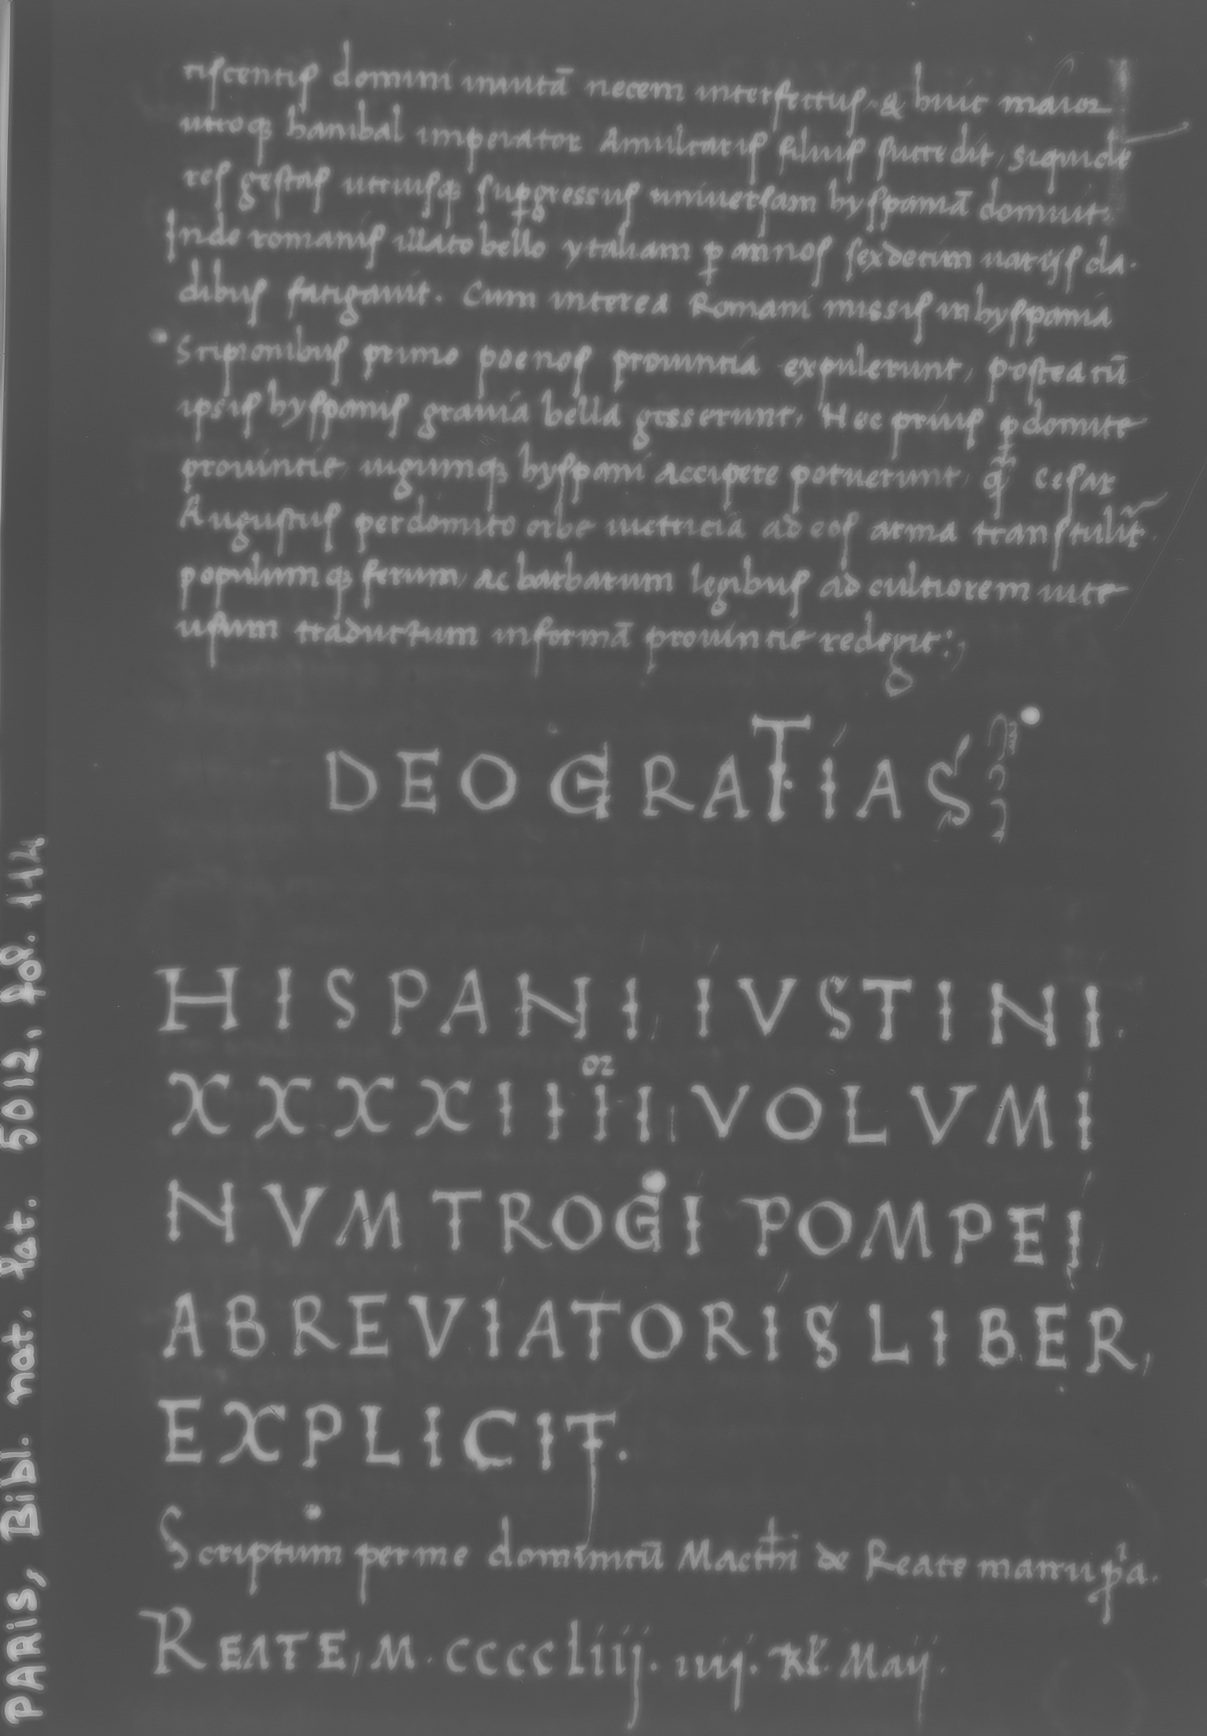 tiscentis domini iniuta̅ necem interfectus, & huic maior
utroq; hanibal imperator Amulcaris filius succedit, siquide
res gestas utriusq; sup̲gressus universam hyspania̅ domuit:
Inde romanis illato bello ytaliam p̲ annos sexdecim uarijs cla-
dibus fatigauit. Cum interea Romani missis in hyspania
Scipionibus primo poenos prouincia expulerunt, postea cu̅
ipsis hyspanis grauia bella gesserunt, Nec prius p̲domite
prouincie iugumq; hyspani accipere potuerunt, q̅ cesar
Augustus perdomito orbe uictricia ad eos arma transtulit.
populumq; ferum, ac barbarum legibus ad cultiorem uite
usum traductum in forma̅ prouincie redegit:,
DEO GRATIAS
HISPANI, IVSTINI
XXXXIIII or VOLVMI
NVM TROGI POMPEI
ABREVIATORIS LIBER,
EXPLICIT.
Scriptum per me dominicu̅ Macthi de Reate manu p̲ia.
REATE, M. ccccliiij. iiij. kl. Maij.
PARIS, Bibl. nat. lat. 5012, fol. 114